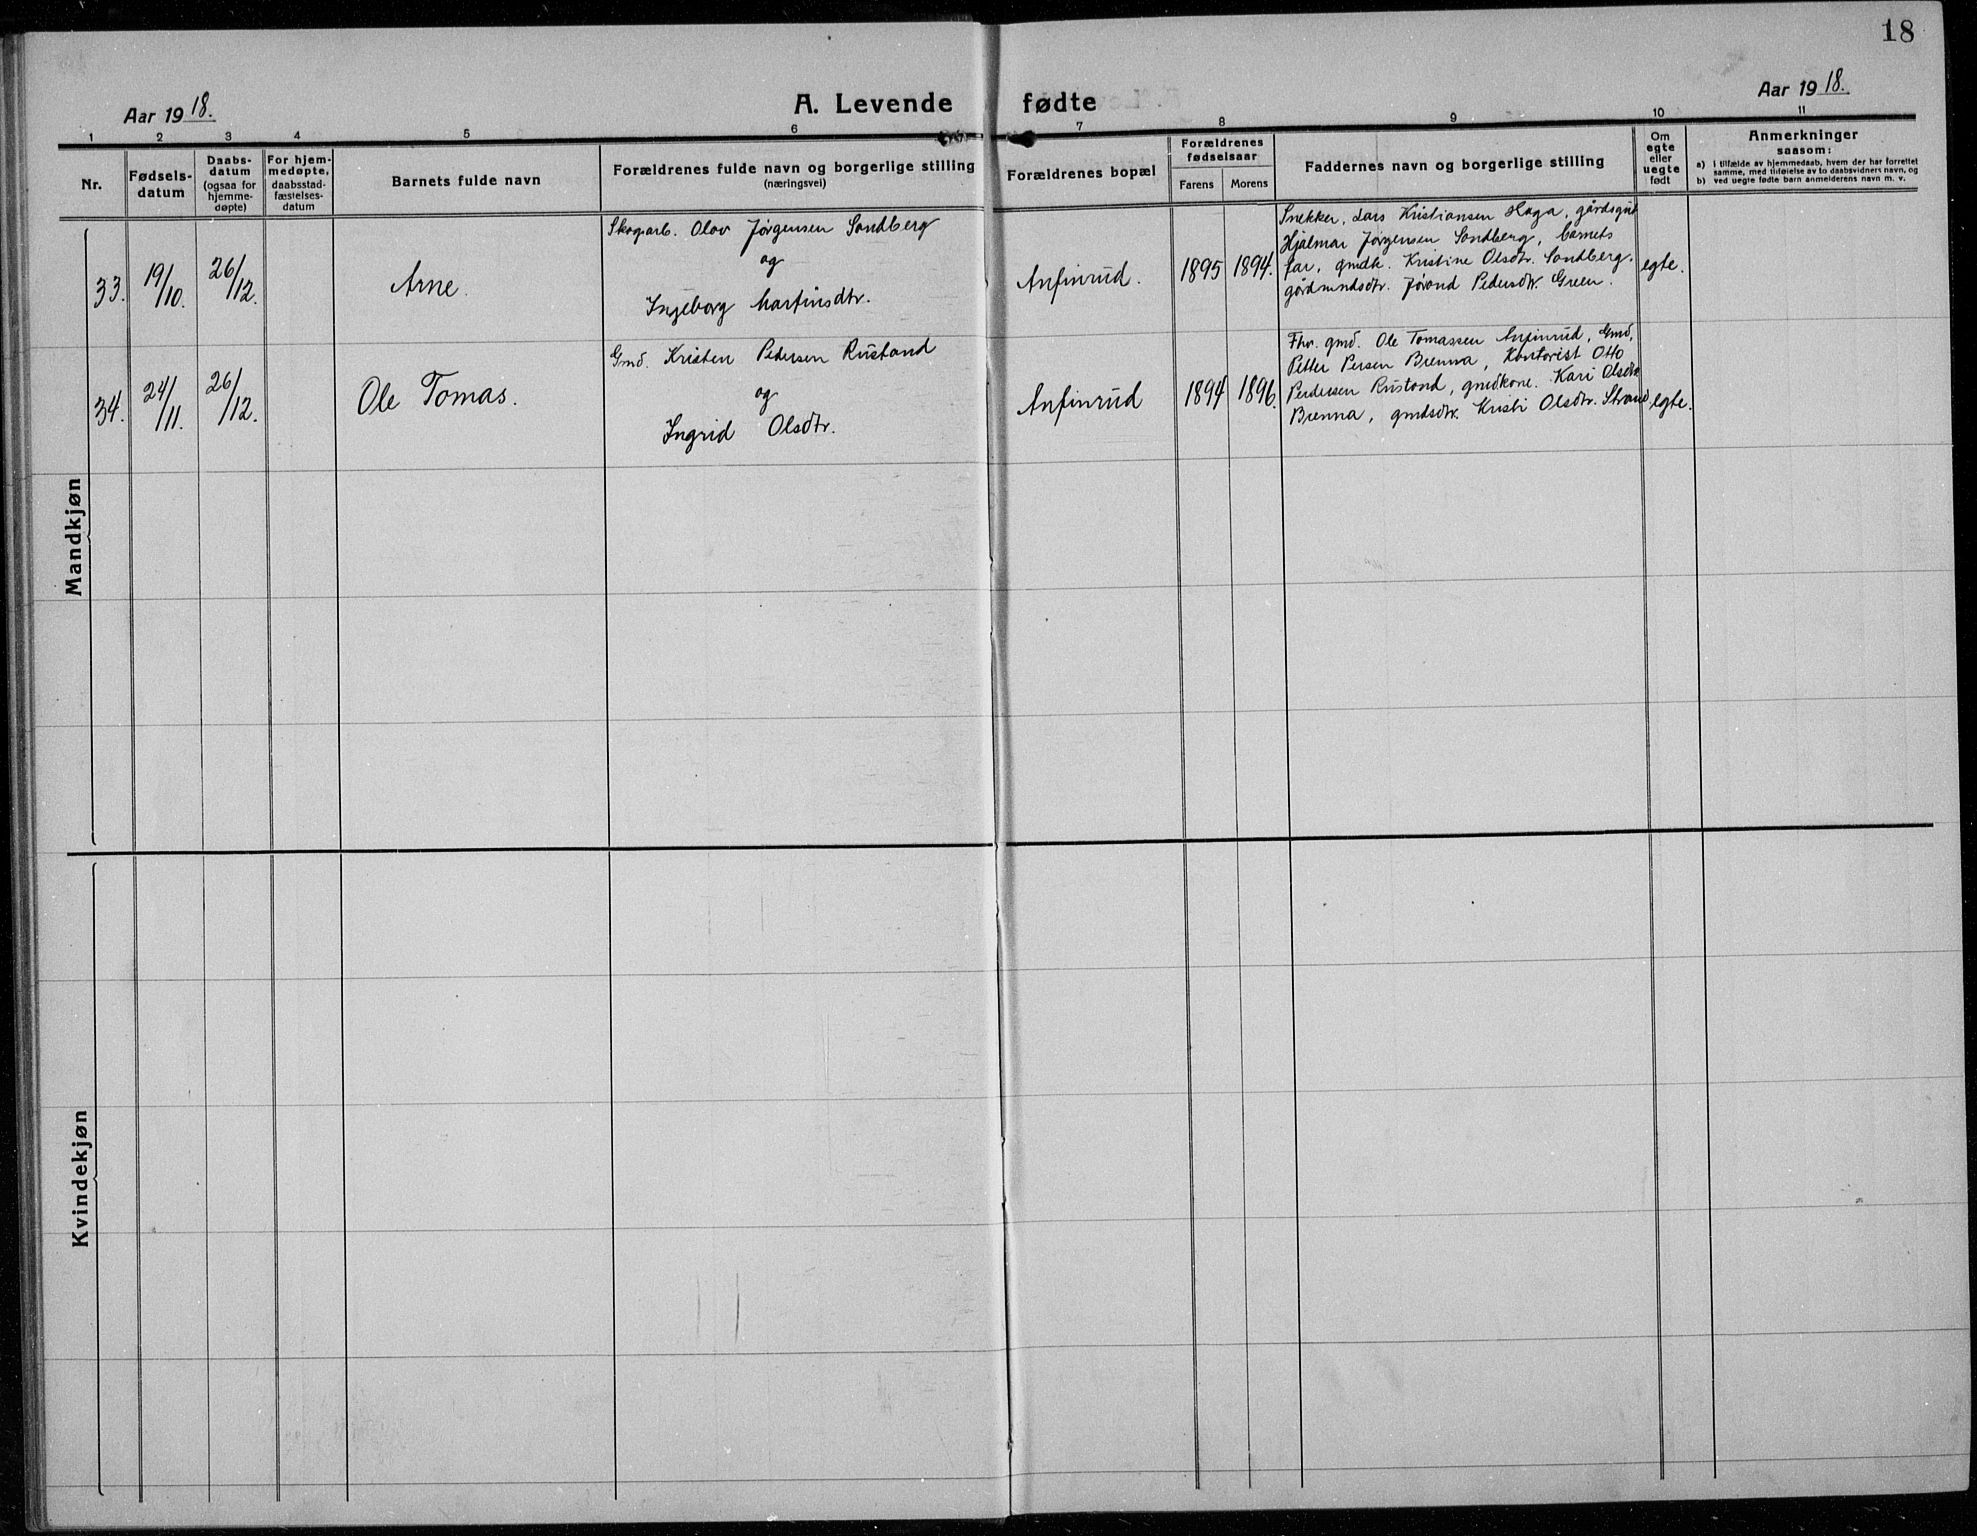 18
Aar 1918.
A. Levende fødte
Aar 1918.
1 2 3 4 5 6 7 8 9 10 11
Nr.
Fødsels-
datum
Daabs-
datum
(ogsaa for
hjemme-
døpte)
For hjem-
medøpte,
daabsstad-
fæstelses-
datum
Barnets fulde navn
Forældrenes fulde navn og borgerlige stilling
(næringsvei)
Forældrenes bopæl
Forældrenes
fødselsaar
Farens Morens
Faddernes navn og borgerlige stilling
Om
egte
eller
uegte
født
Anmerkninger
saasom:
a) I tilfælde av hjemmedaab, hvem der har forrettet
samme, med tilføielse av to daabsvidners navn, og
b) ved uegte fødte barn anmelderens navn m. v.
Mandkjøn
33. 19/10. 26/12. Arne.
Skogarb. Olav Jørgensen Sandberg
og
Ingeborg Martinsdtr.
Anfinrud. 1895 1894.
Snekker, Lars Kristiansen Haga, gårdsgut
Hjalmar Jørgensen Sandberg, barnets
far, gmdk. Kristine Olsdtr. Sandberg.
gårdmndsdtr. Jørand Pedersdtr. Green.
egte.
34. 24/11. 26/12. Ole Tomas.
Gmd. Kristen Pedersen Rustand
og
Ingrid Olsdtr.
Anfinrud 1894 1896.
Fhv. gmd. Ole Tomassen Anfinrud, Gmd.
Petter Persen Brenna, Kontorist Otto
Pedersen Rustand, gmdkone. Kari Olsdtr.
Brenna, gmdsdtr. Kristi Olsdtr. Strand
egte.
Kvindekjøn